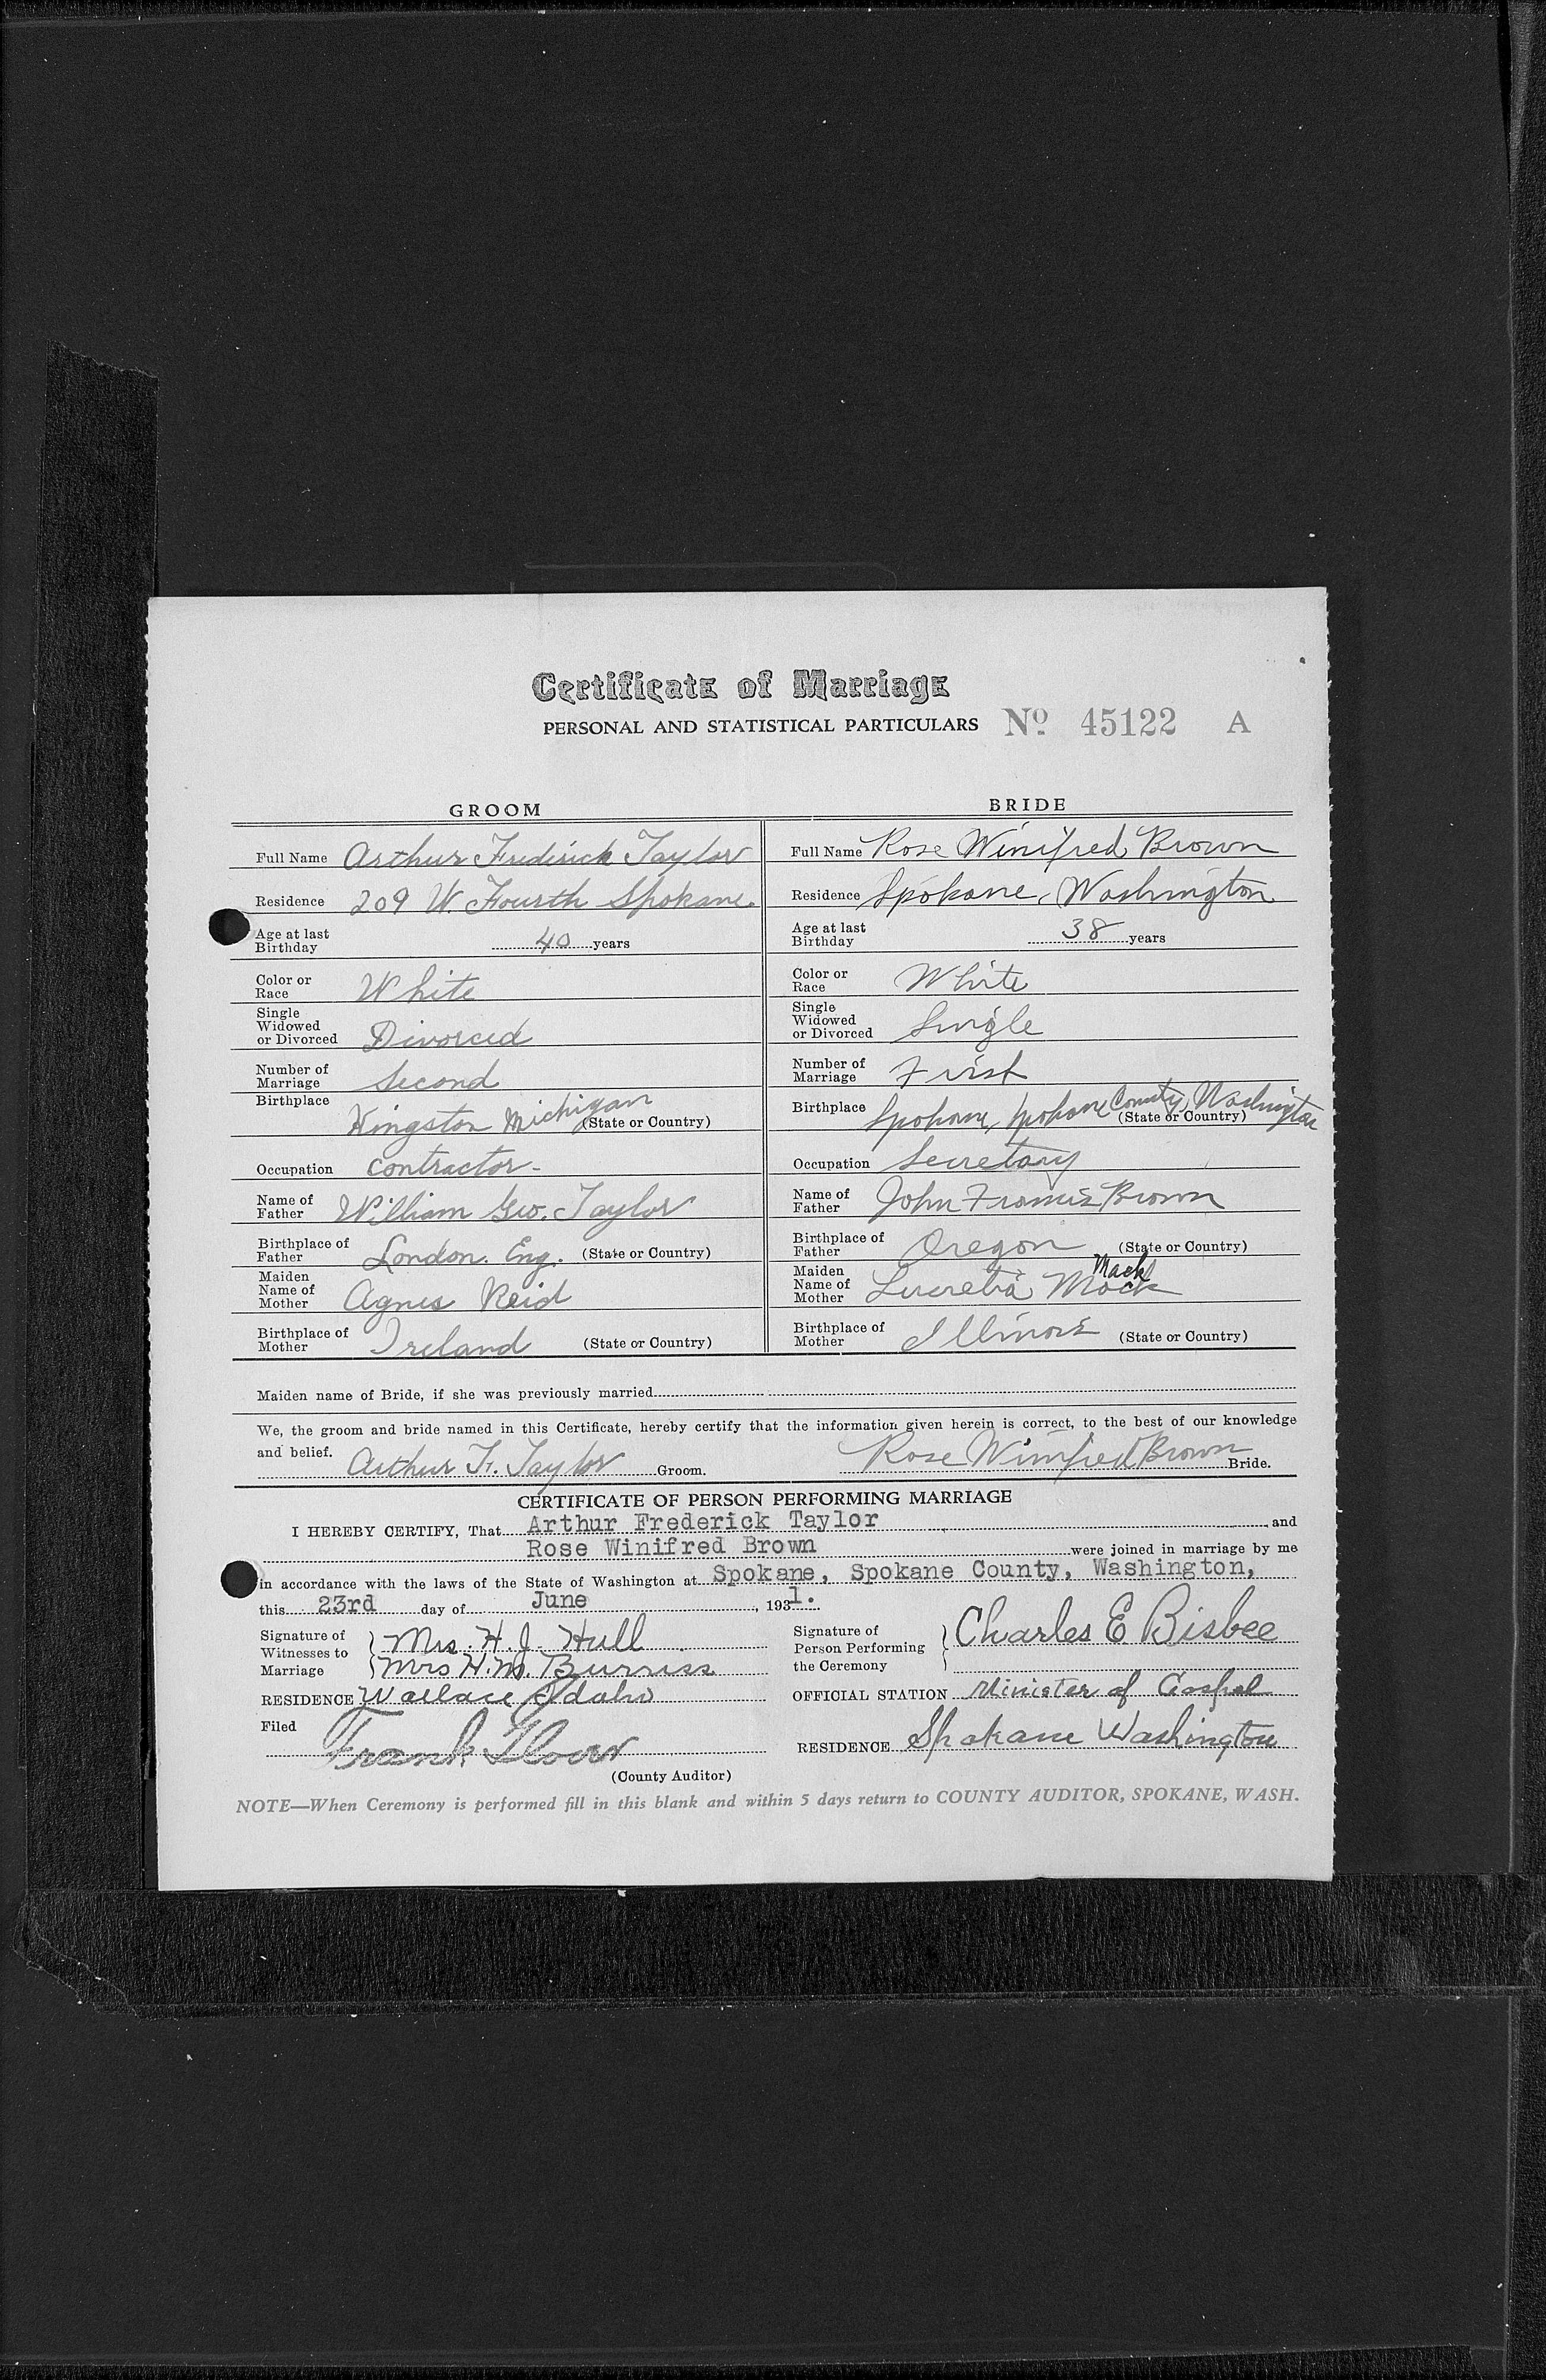 Certificate of Marriage
PERSONAL AND STATISTICAL PARTICULARS No 45122 A
GROOM
BRIDE
Full Name Arthur Frederick Taylor
Full Name Rose Winifred Brown
Residence 209 W. Fourth Spokane.
Residence Spokane, Washington
Age at last Birthday 40 years
Age at last Birthday 38 years
Color or Race White
Color or Race White
Single Widowed or Divorced Divorced
Single Widowed or Divorced Single
Number of Marriage Second
Number of Marriage First
Birthplace Kingston Michigan (State or Country)
Birthplace Spokane, Spokane County, Washington (State or Country)
Occupation contractor-
Occupation Secretary
Name of Father William Geo. Taylor
Name of Father John Francis Brown
Birthplace of Father London. Eng. (State or Country)
Birthplace of Father Oregon (State or Country)
Maiden Name of Mother Agnes Reid
Maiden Name of Mother Lucretia Mock Mack
Birthplace of Mother Ireland (State or Country)
Birthplace of Mother Illinois (State or Country)
Maiden name of Bride, if she was previously married
We, the groom and bride named in this Certificate, hereby certify that the information given herein is correct, to the best of our knowledge
and belief.
Arthur F. Taylor Groom. Rose Winifred Brown Bride.
CERTIFICATE OF PERSON PERFORMING MARRIAGE
I HEREBY CERTIFY, That Arthur Frederick Taylor and
Rose Winifred Brown were joined in marriage by me
in accordance with the laws of the State of Washington at Spokane, Spokane County, Washington,
this 23rd day of June, 1931.
Signature of Witnesses to Marriage Mrs. H. J. Hull
Mrs H. M. Burriss
Signature of Person Performing the Ceremony Charles E Bisbee
RESIDENCE Wallace Idaho
OFFICIAL STATION Minister of Gospel
Filed
Frank Glover
RESIDENCE Spokane Washington
(County Auditor)
NOTE—When Ceremony is performed fill in this blank and within 5 days return to COUNTY AUDITOR, SPOKANE, WASH.